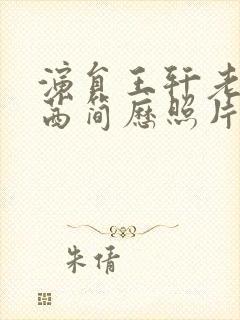 演员王轩老
西简历照片
朱倩